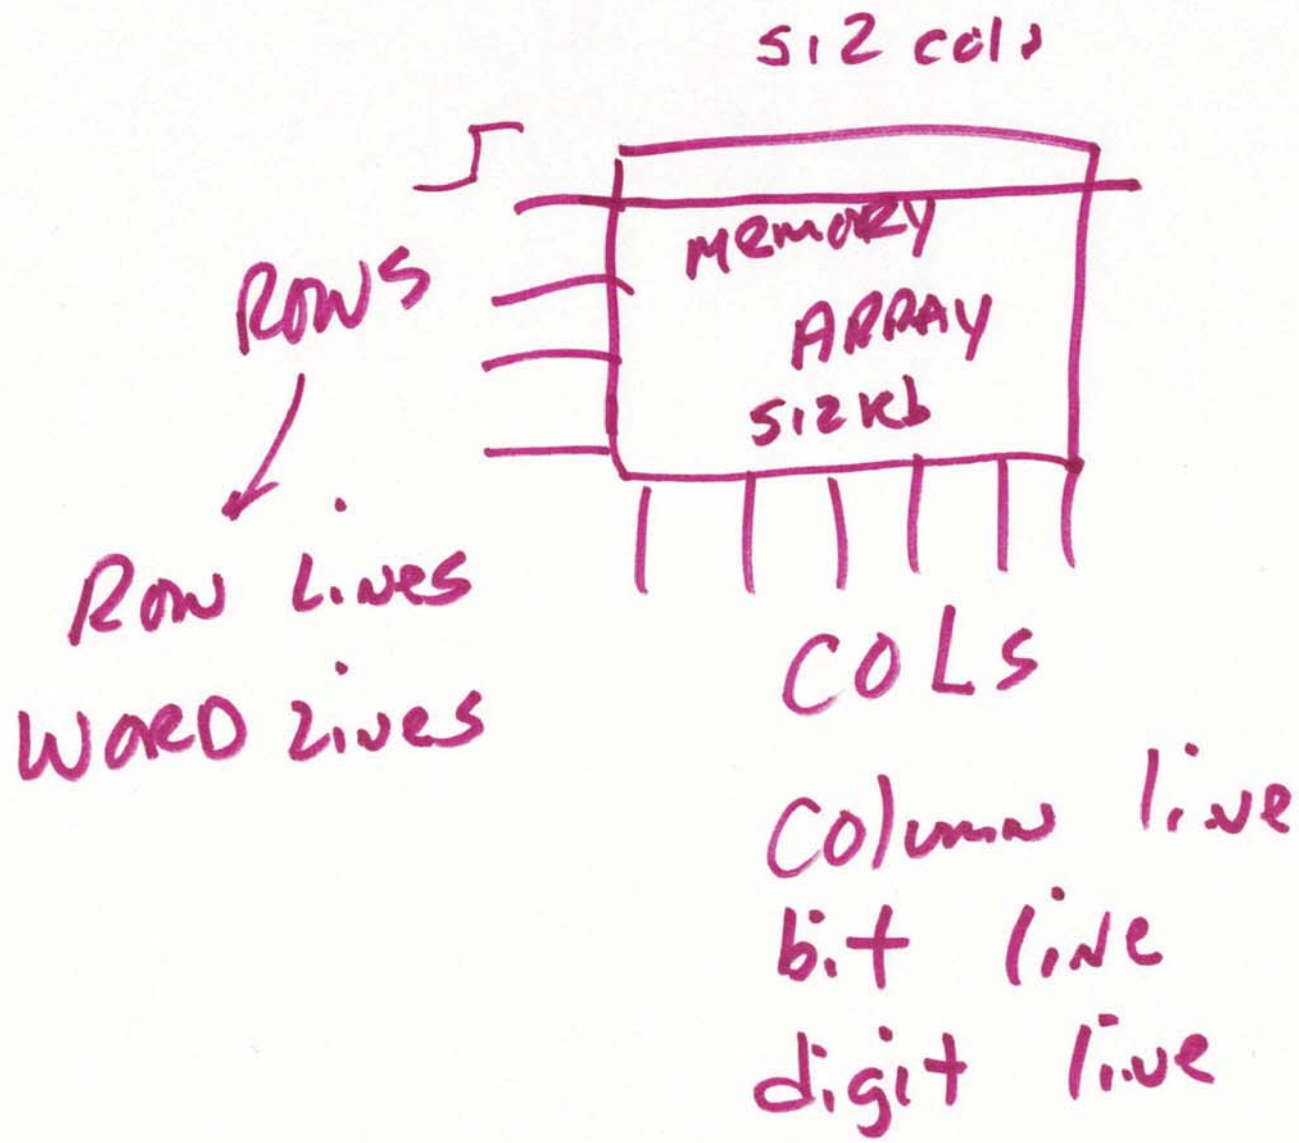 512 cols
MEMORY
ARRAY
512Kb
ROWS
ROW LINES
WORD LINES
COLS
Column line
bit line
digit line